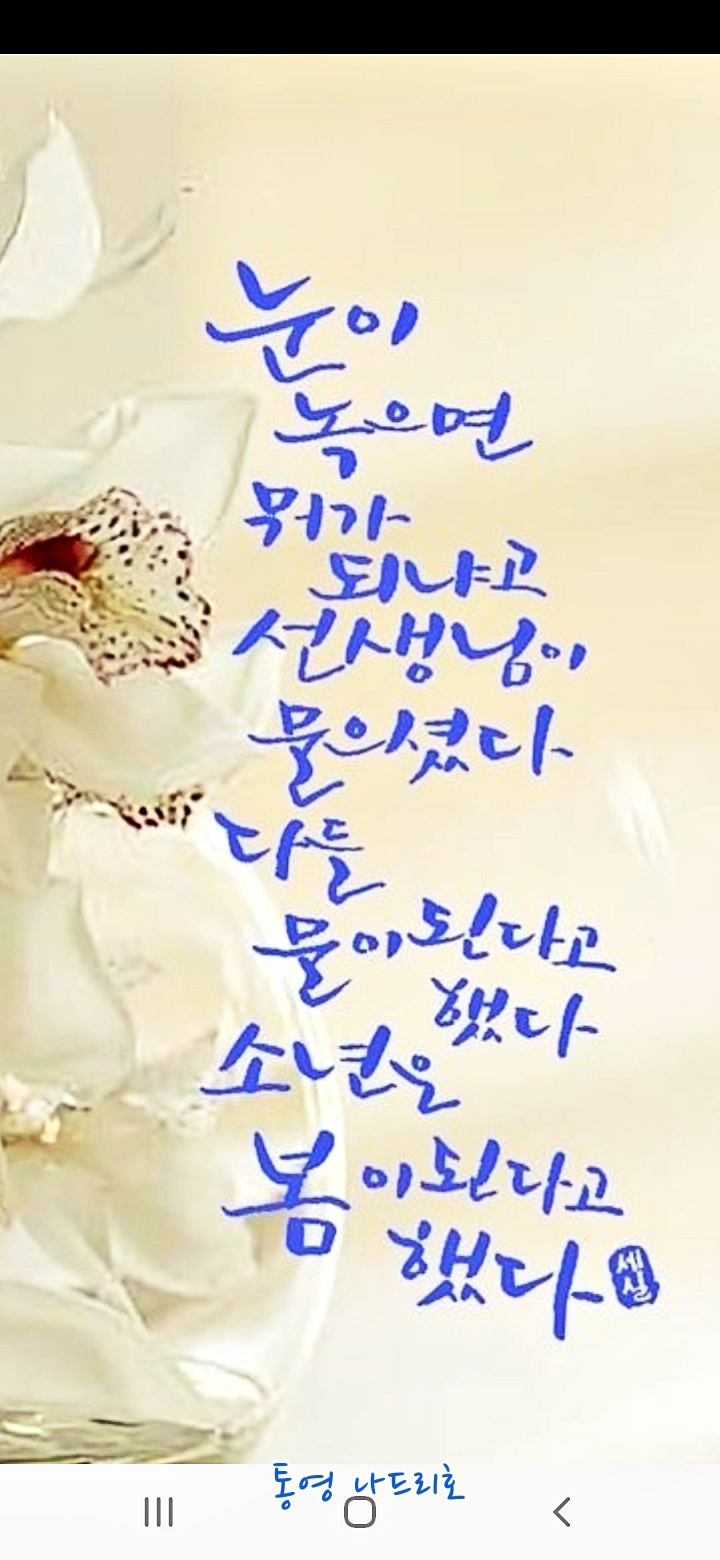 눈이
녹으면
뭐가
되냐고
선생님이
물으셨다
다들
물이 된다고
했다
소년은
봄이 된다고
했다
세실
통영 나드리호